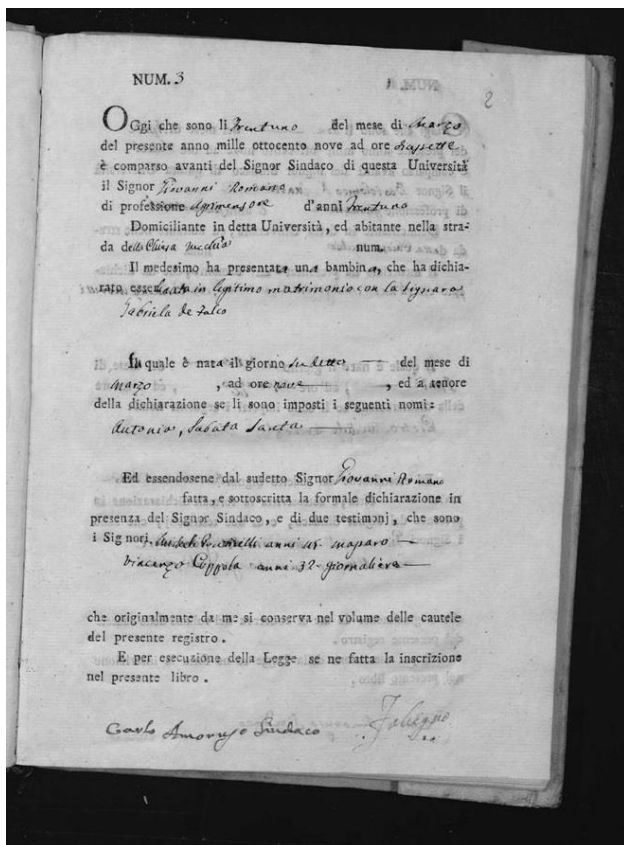 NUM. 3
2
OGgi che sono li Trentuno del mese di Marzo
del presente anno mille ottocento nove ad ore
è comparso avanti del Signor Sindaco di questa Università
il Signor Giovanni Romano
di professione Agrimensore d'anni Trentuno
Domiciliante in detta Università, ed abitante nella stra-
da della Chiesa vecchia num.
Il medesimo ha presentata una bambina, che ha dichia-
rato esser nata in legitimo matrimonio con la Signara
Gabriela de Falco
In quale è nata il giorno sudetto del mese di
Marzo , ad ore nove , ed a tenore
della dichiarazione se li sono imposti i seguenti nomi:
Antonia, Sabata Santa
Ed essendosene dal sudetto Signor Giovanni
fatta, e sottoscritta la formale dichiarazione in
presenza del Signor Sindaco, e di due testimonj, che sono
i Signori anni 45
Vincenzo Coppola anni 32 giornaliere
che originalmente da me si conserva nel volume delle cautele
del presente registro.
E per esecuzione della Legge se ne fatta la inscrizione
nel presente libro.
Carlo Amoruso Sindaco